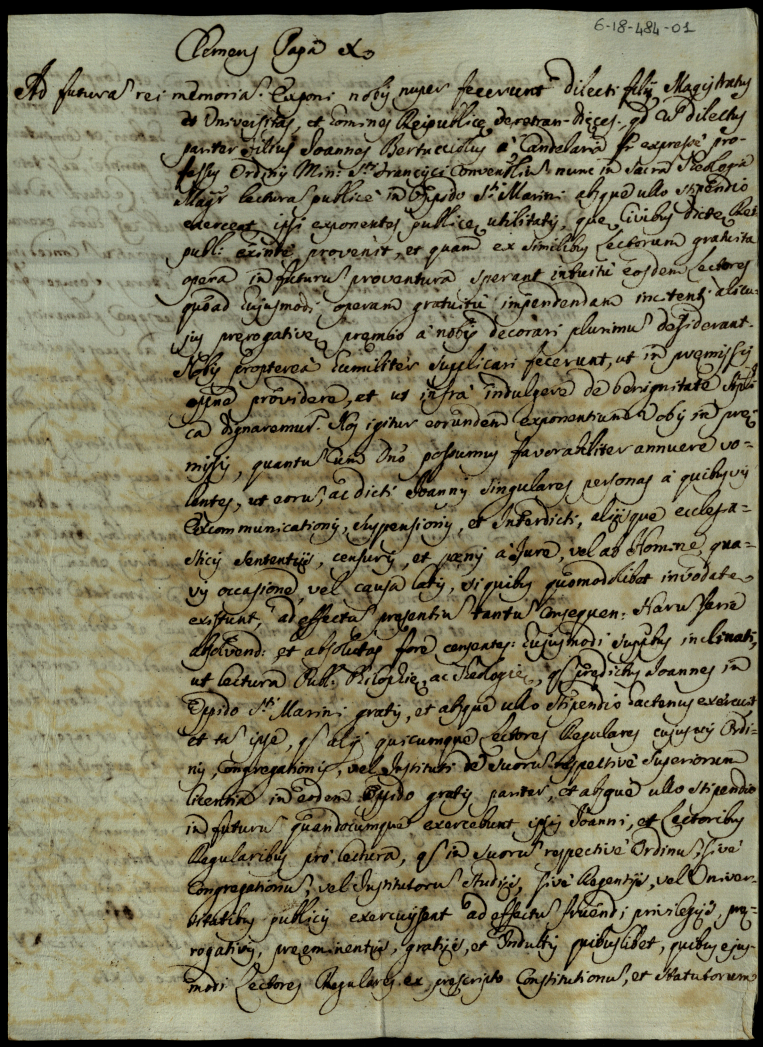 6-18-484-01
Clemens Papa X.
Ad futura rei memoria. Exponi nobis nuper fecerunt dilecti filij Magistratus
et Universitas, et homines Reipublice dieces. qd dilectus
pariter filius Joannes Bertuccidus à Candelaria fr. expresse pro-
fessus Ordinis Min: Sti Francisci Conventliu nunc in Sacra Theologia
Magr lectura publice in Oppido Sti Marini absque ullo stipendio
exerceat, ipsi exponentes publice utilitatis, que Civibus dicte Rei-
publ: exinde provenit, et quam ex similibus Lectorum gratuita
opera in futuru proventura sperant intuitu eosdem Lectores
quoad hujusmodi operam gratuitu impendendam incitent alicu-
jus prerogative premio à nobis decorari plurimu desiderant.
Nobis propterea humiliter supplicari fecerunt, ut in premissis
opne providere, et ut infra indulgere de benignitate Aplica
ca dignaremur. Nos igitur eorundem exponentium nobis in pre-
missis, quantu cum Dno possumus favorabiliter annuere vo-
lentes, ut eoru, ac dicti Joannis singulares personas à quibusvis
excommunicationis, suspensionis, et Interdicti, alijsque ecclesia-
sticis sententijs, censuris, et penis à Jure, vel ab Homine qua-
vis occasione, vel causa latis, si quibus quomodolibet innodate
existunt, ad effectu presentiu tantu consequen: Haru serie
absolvend: et absolutas fore censentes: hujusmodi supplbus inclinati,
ut lectura Publ: Philophie, ac Theologie, qs predictus Joannes in
Oppido Sti Marini gratis, et absque ullo stipendio hactenus exercuit
et ta ipse, qs alij quicumque Lectores Regulares cujusvis Ordi-
nis, Congregationis, vel Instituti de suoru respective Superiorum
licentia in eodem Oppido gratis pariter, et absque ullo stipendio
in futuru quandocumque exercebunt ipsis Joanni, et Lectoribus
Regularibus pro lectura, qs in suoru respective Ordinu, sive
Congregationu, vel Institutoru studijs, sive Regentijs, vel Univer-
sitatibus publicis exercuissent ad effectu fruendi privilegijs, pre-
rogativis, preeminentijs, gratijs, et Indultis quibuslibet, quibus ejus-
modi Lectores Regulares ex prescripto Constitutionu, et statutorum